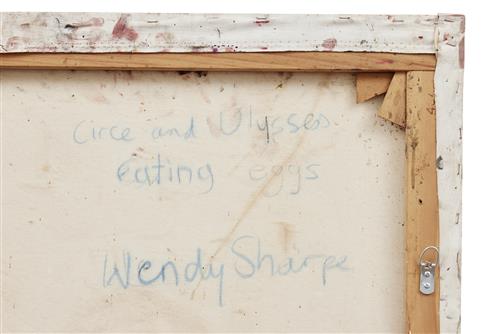 Circe and Ulysses
Eating eggs
Wendy Sharpe